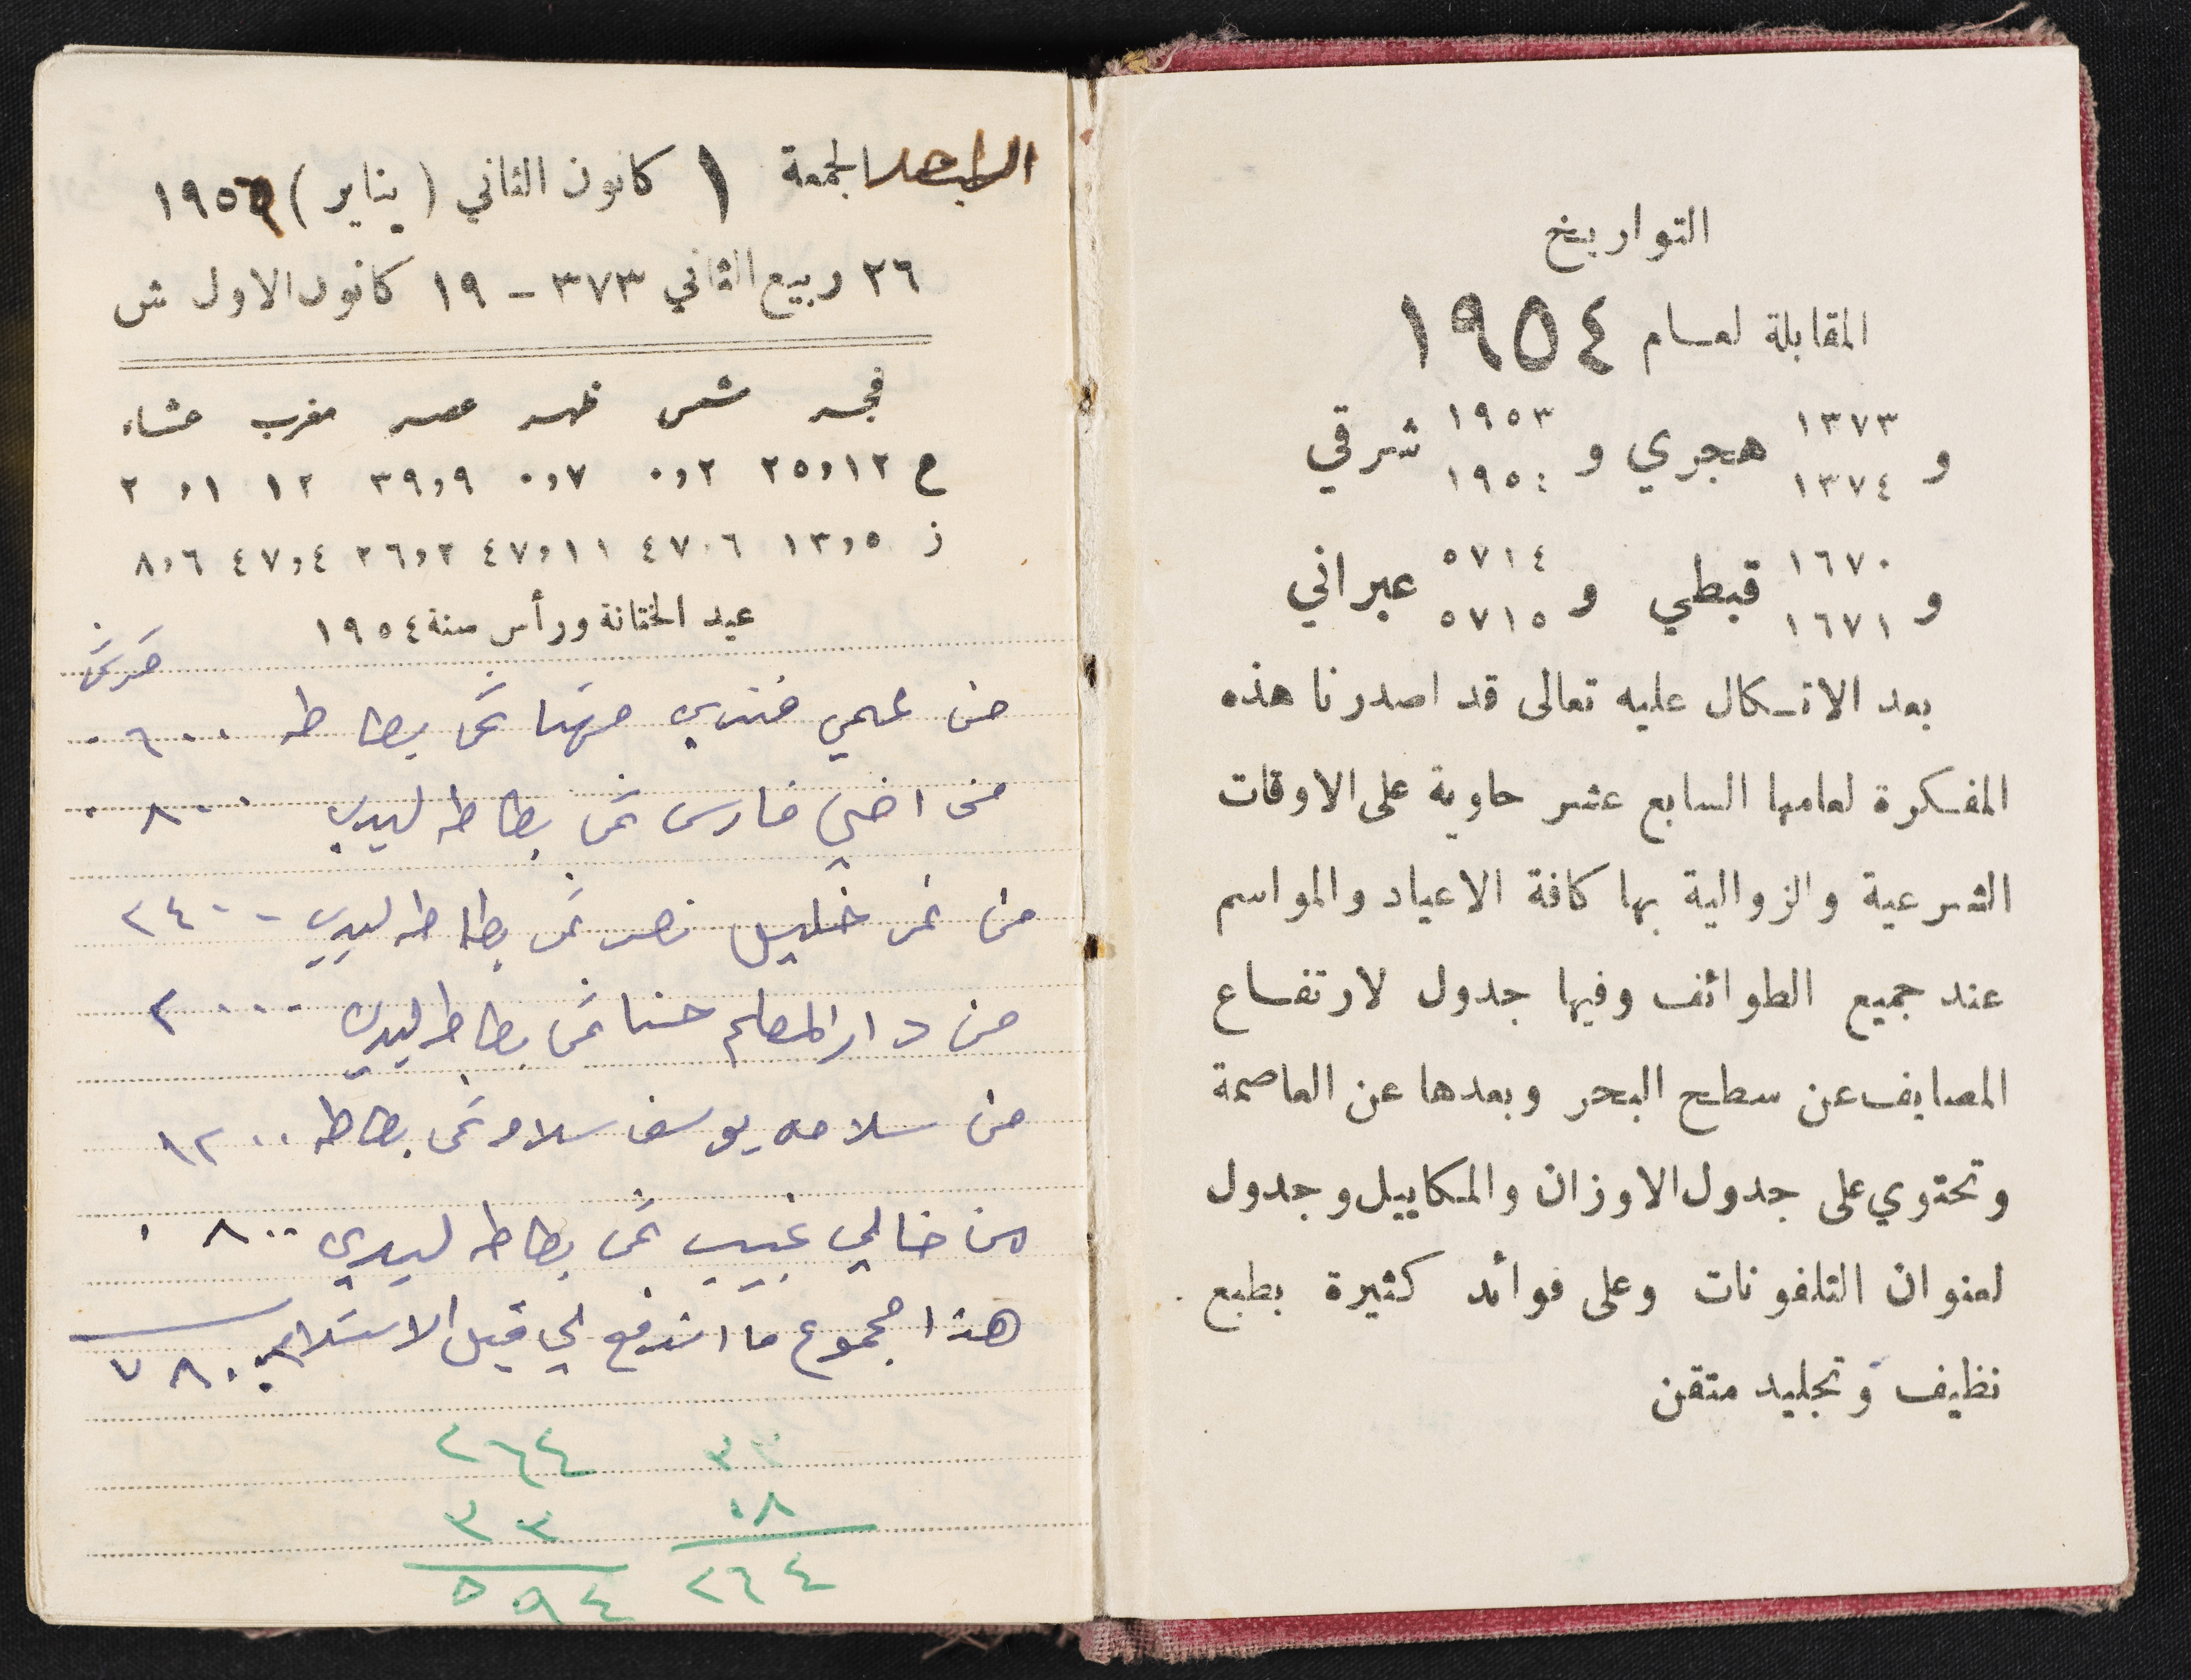 التواريخ
المقابلة لعام ١٩٥٤
و ١٣٧٣ ١٣٧٤ هجري و ١٩٥٣ ١٩٥٤ شرقي
و ١٦٧٠ ١٦٧١ قبطي و ٥٧١٤ ٥٧١٥ عبراني
بعد الاتكال عليه تعالى قد اصدرنا هذه
المفكرة لعامها السابع عشر حاوية على الاوقات
الشرعية والزوالية بها كافة الاعياد والمواسم
عند جميع الطوائف وفيها جدول لارتفاع
المصايف عن سطح البحر وبعدها عن العاصمة
وتحتوي على جدول الاوزان والمكاييل وجدول
لعنوان التلفونات وعلى فوائد كثيرة بطبع
نظيف وتجليد متقن
الجمعة ١ كانون الثاني (يناير) ١٩٥٦
٢٦ ربيع الثاني ٣٧٣ - ١٩ كانون الاول ش
فجر شمس ظهر عصر مغرب عشاء
ع ٢٥,١٢ ٠,٢ ٠,٧ ٣٩,٩ ١٢ ١, ٢
ز ١٣,٥ ٤٧٠٦ ٤٧,١١ ٢٦,٢ ٤٧,٤ ٨,٦
عيد الختانة ورأس سنة ١٩٥٤
من مهنا ثمن بطاطه ٦٠٠
من اخي فارس ثمن بطاطه ليدي ٨٠٠
من نمر خليل نصر ثمن بطاطه ليدي ٢٤٠٠
من دار المعلم حنا ثمن بطاطه ليدي ٢٠٠٠
من سلامه يوسف سلامه ثمن بطاطه ١٢٠٠
من خالي نجيب ثمن بطاطه ليدي ٨٠٠
هذا مجموع ما اندفع لي قبل الاستلام ٧٨٠٠
٣٣ ٢٦٤
٠٨ ٣٣
٢٦٤ ٥٩٤